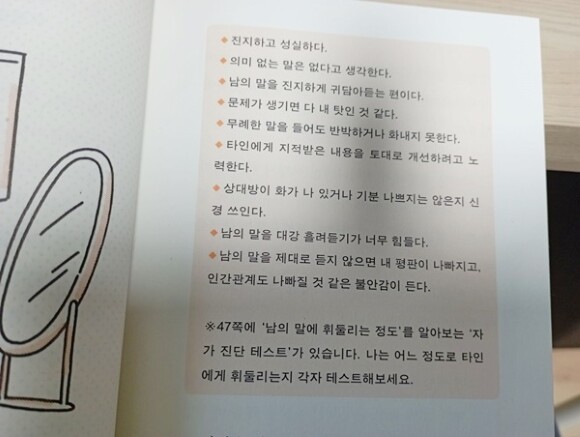 ◆진지하고 성실하다.
◆의미 없는 말은 없다고 생각한다.
◆남의 말을 진지하게 귀담아듣는 편이다.
◆문제가 생기면 다 내 탓인 것 같다.
◆무례한 말을 들어도 반박하거나 화내지 못한다.
◆타인에게 지적받은 내용을 토대로 개선하려고 노
력한다.
◆상대방이 화가 나 있거나 기분 나쁘지는 않은지 신
경 쓰인다.
◆남의 말을 대강 흘려듣기가 너무 힘들다.
◆남의 말을 제대로 듣지 않으면 내 평판이 나빠지고,
인간관계도 나빠질 것 같은 불안감이 든다.
※47쪽에 '남의 말에 휘둘리는 정도'를 알아보는 '자
가 진단 테스트'가 있습니다. 나는 어느 정도로 타인
에게 휘둘리는지 각자 테스트해보세요.